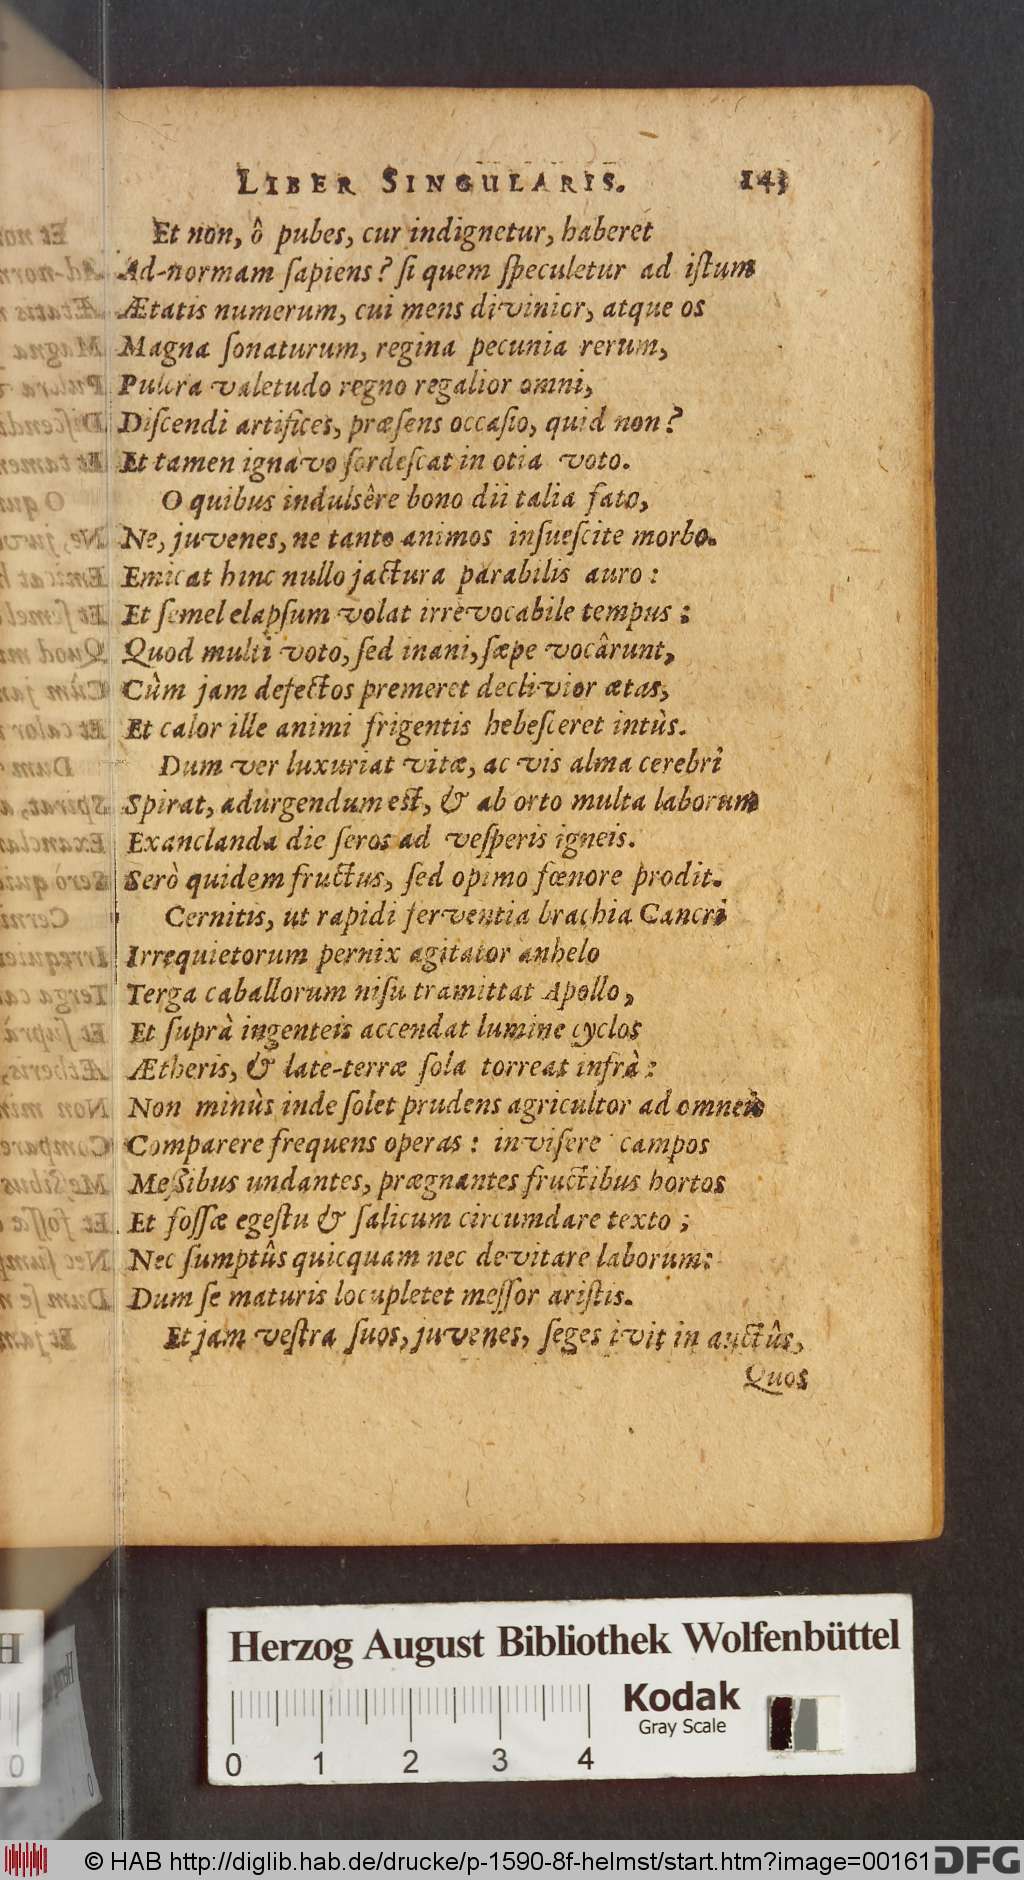 LIBER SINGULARIS. 143
Et non, ô pubes, cur indignetur, haberet
Ad-normam ſapiens? ſi quem ſpeculetur ad iſtum
Ætatis numerum, cui mens divinior, atque os
Magna ſonaturum, regina pecunia rerum,
Pulcra valetudo regno regalior omni,
Diſcendi artifices, præſens occaſio, quid non?
Et tamen ignavo ſordeſcat in otia voto.
O quibus indulsêre bono dii talia fato,
Ne, juvenes, ne tanto animos inſueſcite morbo.
Emicat hinc nullo jactura parabilis auro:
Et ſemel elapſum volat irrevocabile tempus:
Quod multi voto, ſed inani, ſæpe vocârunt,
Cùm jam defectos premeret declivior ætas,
Et calor ille animi frigentis hebeſceret intùs.
Dum ver luxuriat vitæ, ac vis alma cerebri
Spirat, adurgendum est, & ab orto multa laborum
Exanclanda die ſeros ad veſperis igneis.
Serò quidem fructus, ſed opimo fœnore prodit.
Cernitis, ut rapidi ferventia brachia Cancri
Irrequietorum pernix agitator anhelo
Terga caballorum niſu tramittat Apollo,
Et ſuprà ingenteis accendat lumine cyclos
Ætheris, & late-terræ ſola torreat infrà:
Non minùs inde ſolet prudens agricultor ad omneis
Comparere frequens operas: inviſere campos
Meſſibus undantes, prægnantes fructibus hortos
Et foſſæ egeſtu & ſalicum circumdare texto;
Nec ſumptûs quicquam nec devitare laborum:
Dum ſe maturis locupletet meſſor ariſtis.
Et jam veſtra ſuos, juvenes, ſeges ivit in auctûs,
Quos
Herzog August Bibliothek Wolfenbüttel
Kodak
Gray Scale
0 1 2 3 4
© HAB http://diglib.hab.de/drucke/p-1590-8f-helmst/start.htm?image=00161 DFG